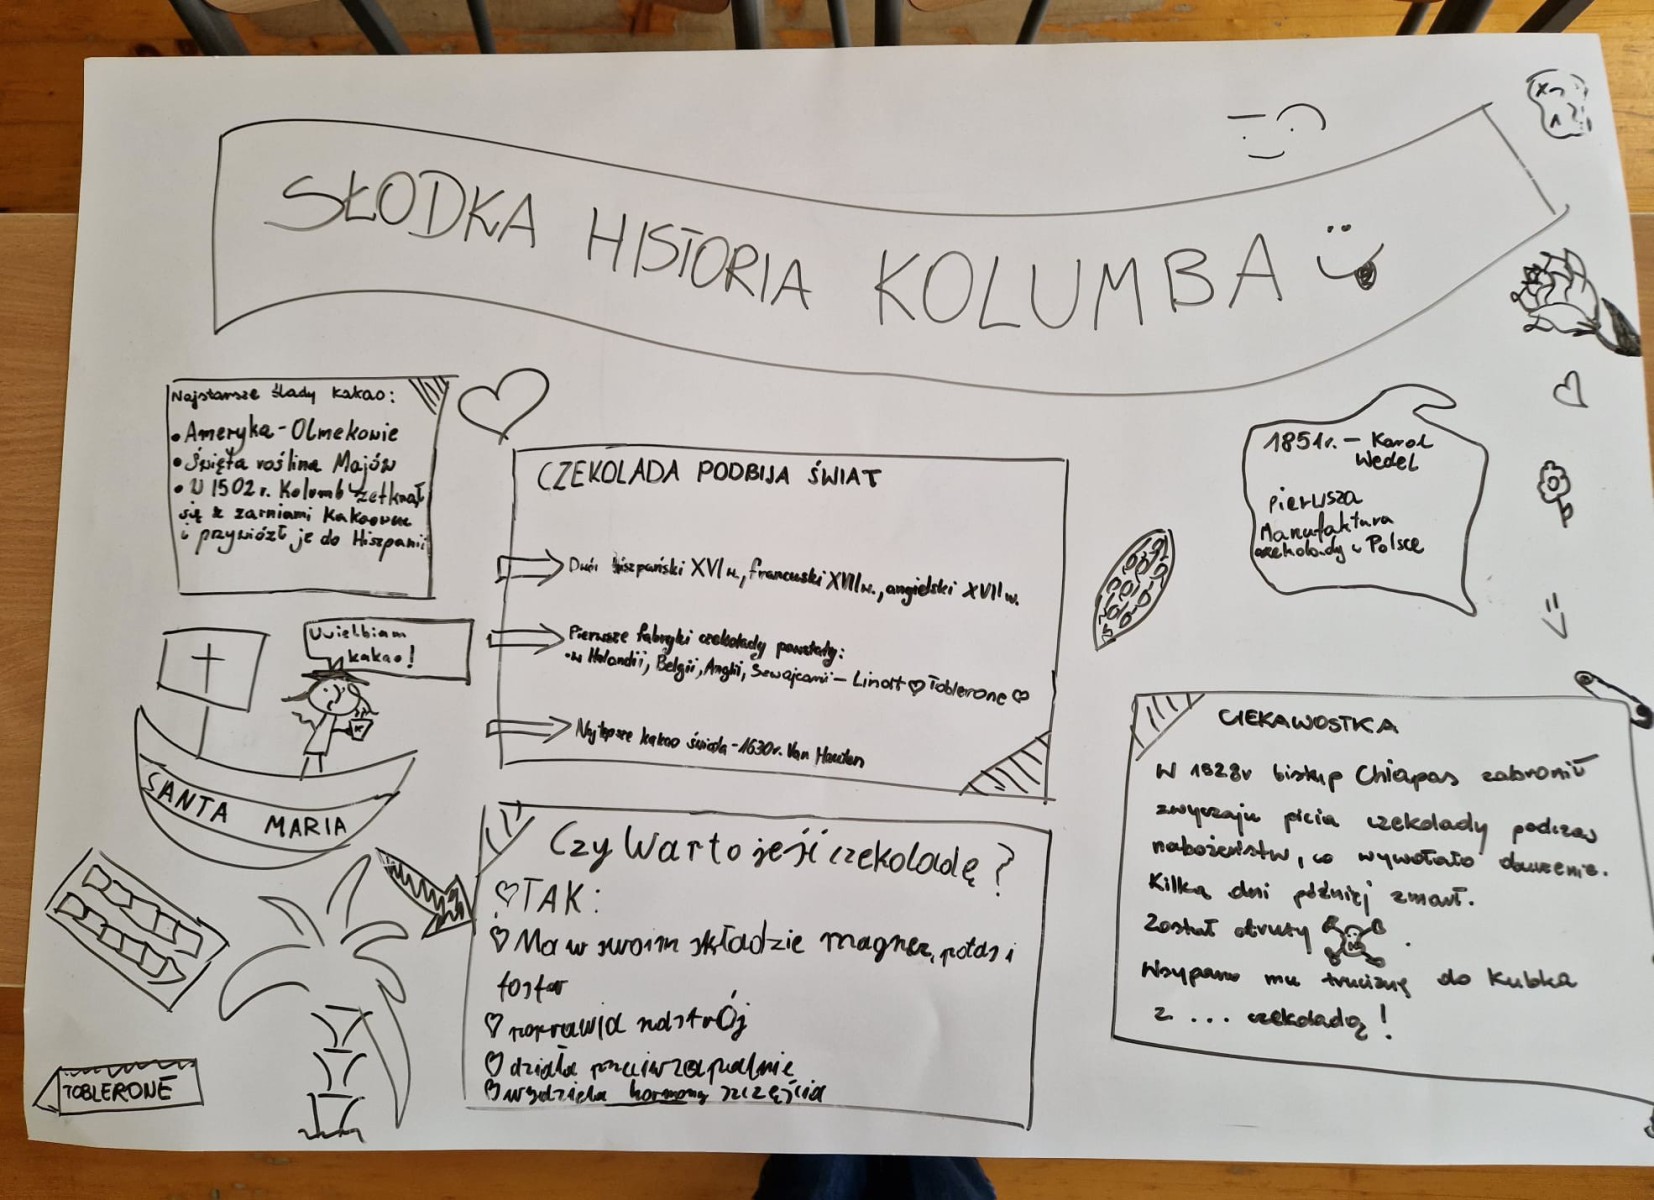 SŁODKA HISTORIA KOLUMBA
Najstarsze ślady kakao:
• Ameryka - Olmekowie
• Święta roślina Majów
• W 1502 r. Kolumb zetknął
się z zarniami kakaowe
i przywiózł je do Hiszpanii
Uwielbiam
kakao!
SANTA MARIA
TOBLERONE
CZEKOLADA PODBIJA ŚWIAT
Dwór hiszpański XVI w., francuski XVII w., angielski XVII w.
Pierwsze fabryki czekolady powstały:
• w Holandii, Belgii, Anglii, Szwajcarii - Lindt ♡ Toblerone ♡
Najlepsze kakao świata - 1630r. Van Houten
Czy Warto jeść czekoladę?
♡ TAK:
♡ Ma w swoim składzie magnez, potas i
fosfor
♡ poprawia nastrój
♡ działa przeciwzapalnie
♡ wydziela hormony szczęścia
1851r. - Karol
Wedel
pierwsza
Manufaktura
czekolady w Polsce
CIEKAWOSTKA
W 1628r biskup Chiapas zabronił
zwyczaju picia czekolady podczas
nabożeństw, co wywołało oburzenie.
Kilka dni później zmarł.
Został otruty .
Wsypano mu truciznę do kubka
z ... czekoladą!